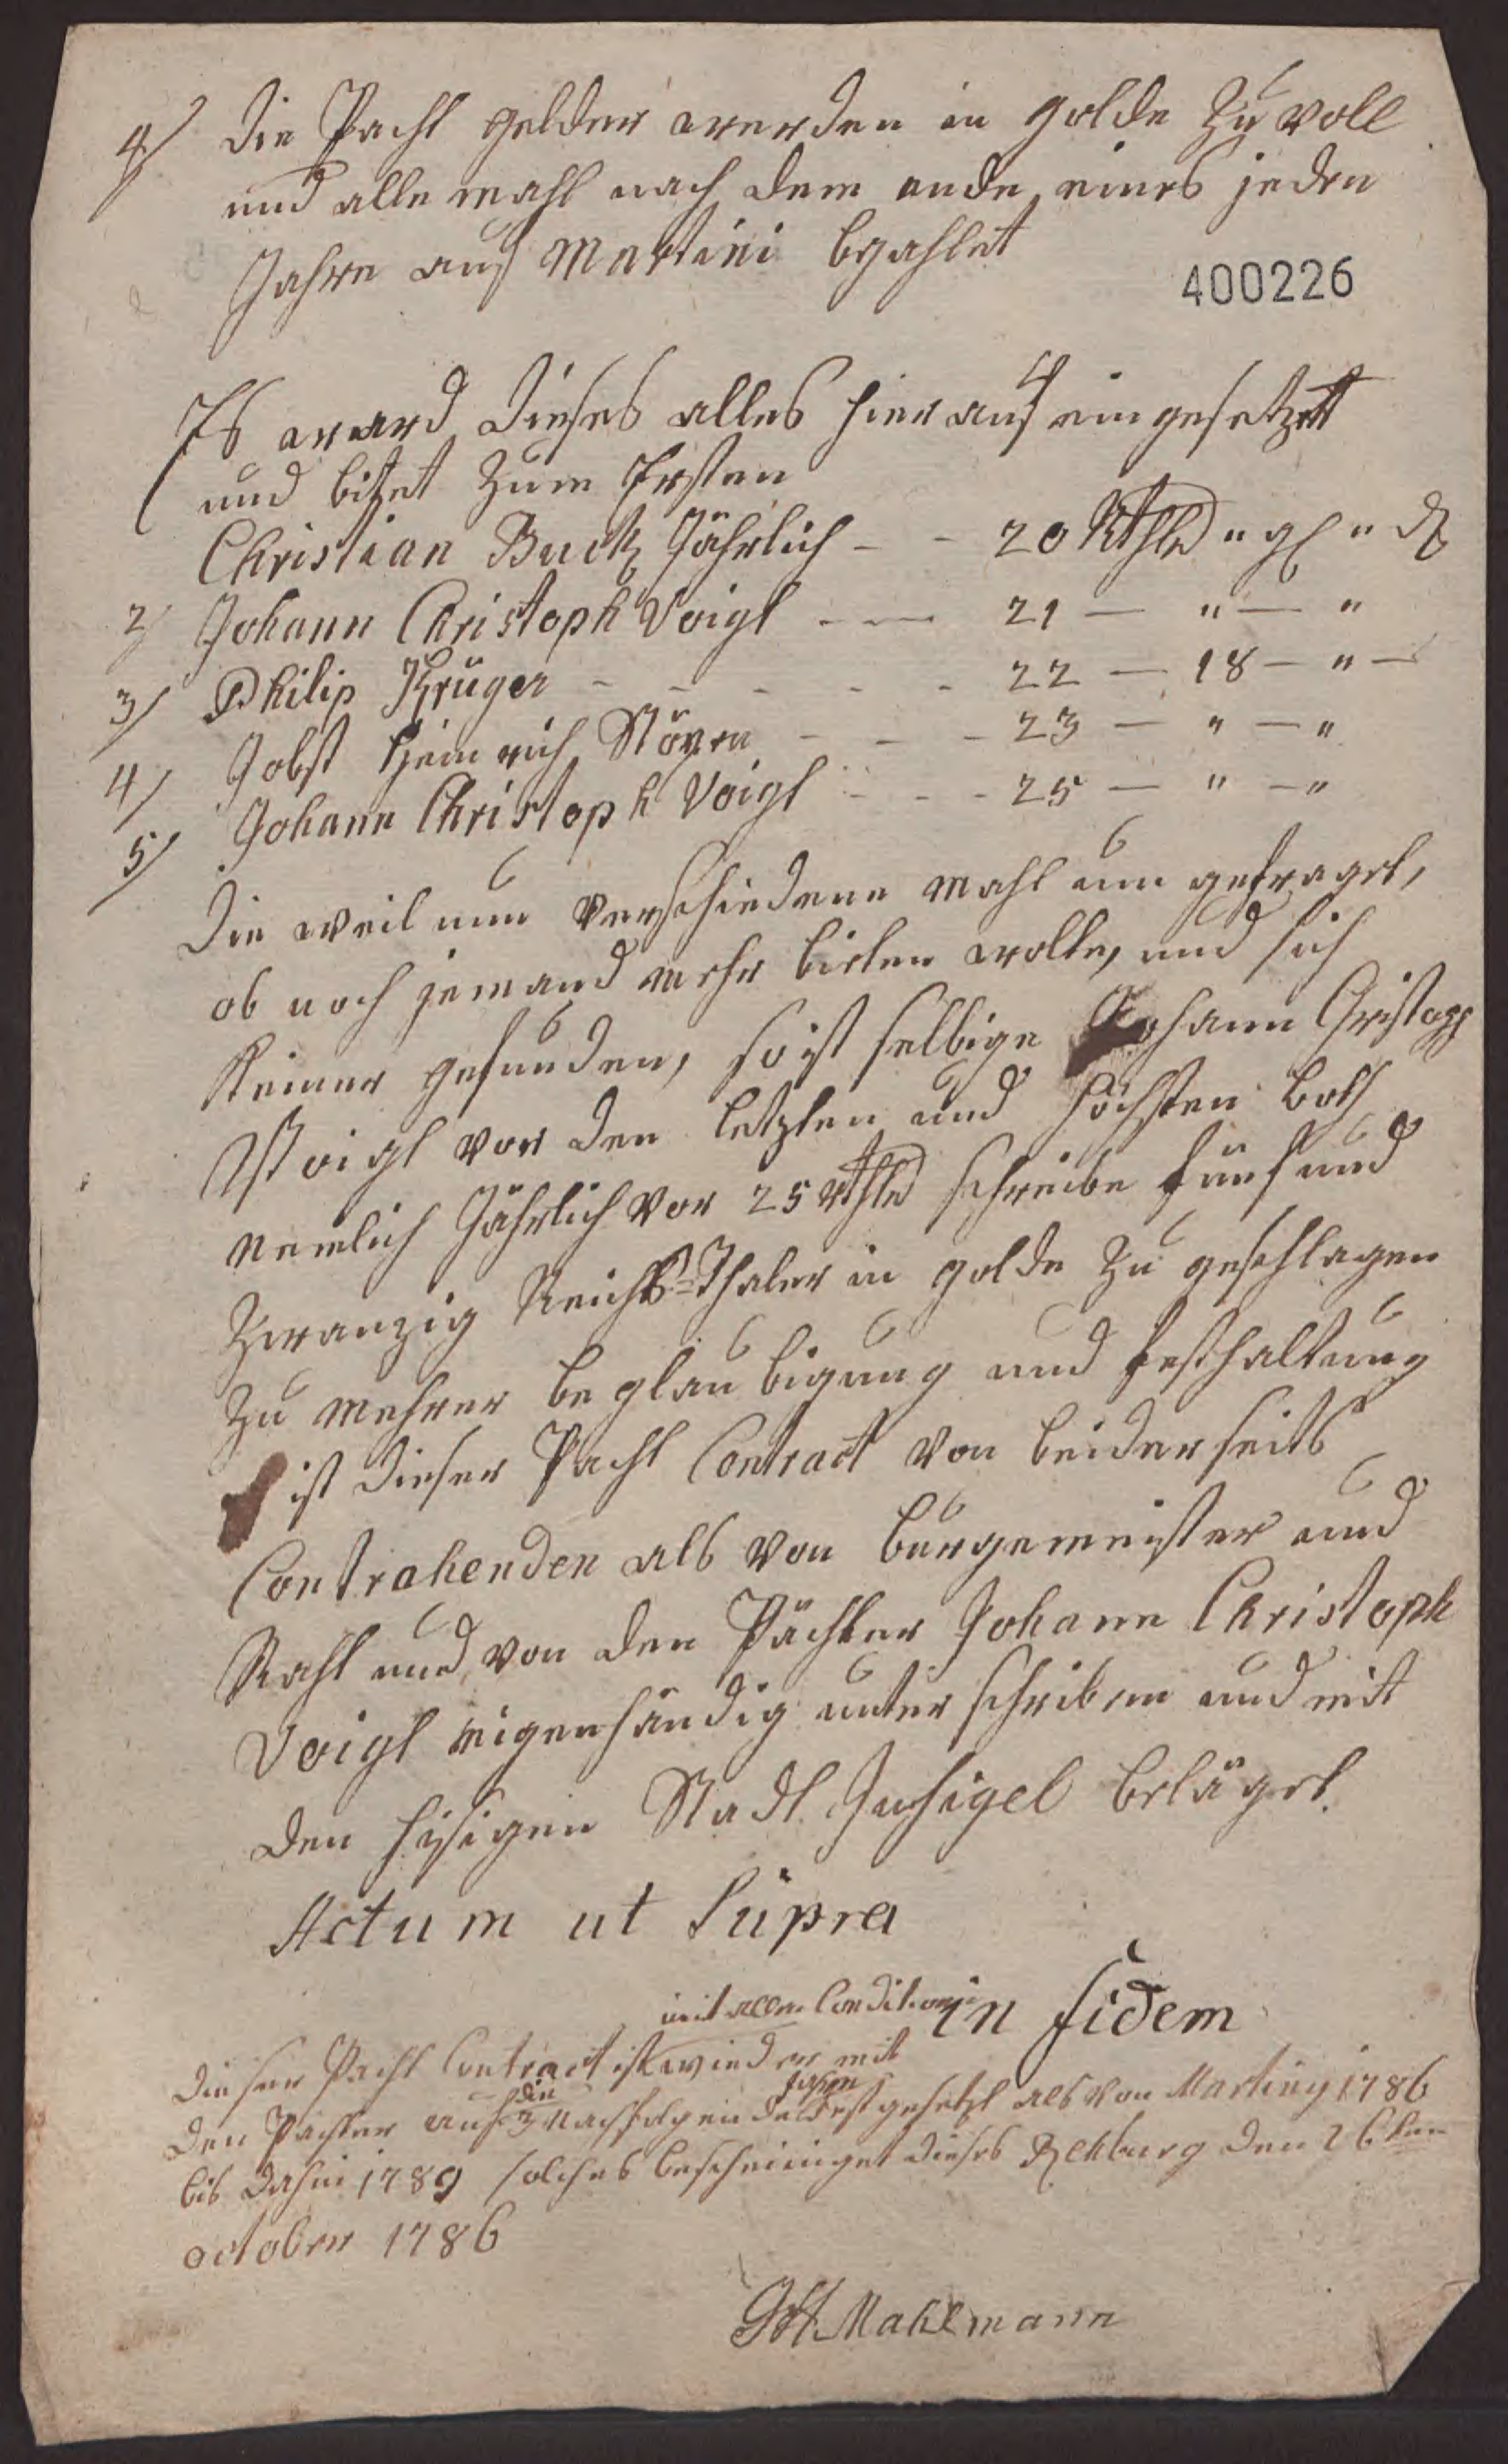 4/ Die Pacht gelder werden in golde zu voll
und alle mahl nach dem ende eines jeden
Jahre auf Martini bezahlet
400226
Es ward dieses alles hier auf ein gesetzet
und bitet zum Ersten
Christian Buck Jährlich - - 20 Rthlr " gl " d
2/ Johann Christoph Voigt - - 21 — " — "
3/ Philip Krüger - - - - - 22 — 18 — " —
4/ Jobst Heinrich Stöxen - - - 23 — " — "
5/ Johann Christoph Voigt - - - 25 — " — "
Die weil nun verschiedene mahl um gefraget,
ob noch jemand mehr bieten wolte, und sich
Keiner gefunden, so ist selbige Johann Christoph
Voigt vor den letzten und höchsten both
nemlich Jährlich vor 25 Rthlr schreibe fünf und
zwanzig Reichs-Thaler in golde zu geschlagen
zu mehrer beglaubigung und festhaltung
ist dieser Pacht Contract von beiderseits
Contrahenden als von bürgemeister und
Raht und von den Pächter Johann Christoph
Voigt eigenhändig unter schriben und mit
den hisigen Stadt Insigel beläget.
Actum ut Supra
in fidem
mit allen Conditionen
Dieser Pacht Contract ist wieder mit
den Pächter auf die 3 Nachfolgende Jahre fest gesetzt als von Martiny 1786
bis dahin 1789 solches bescheiniget dieses Rehburg den 26ten
october 1786
Mahlmann